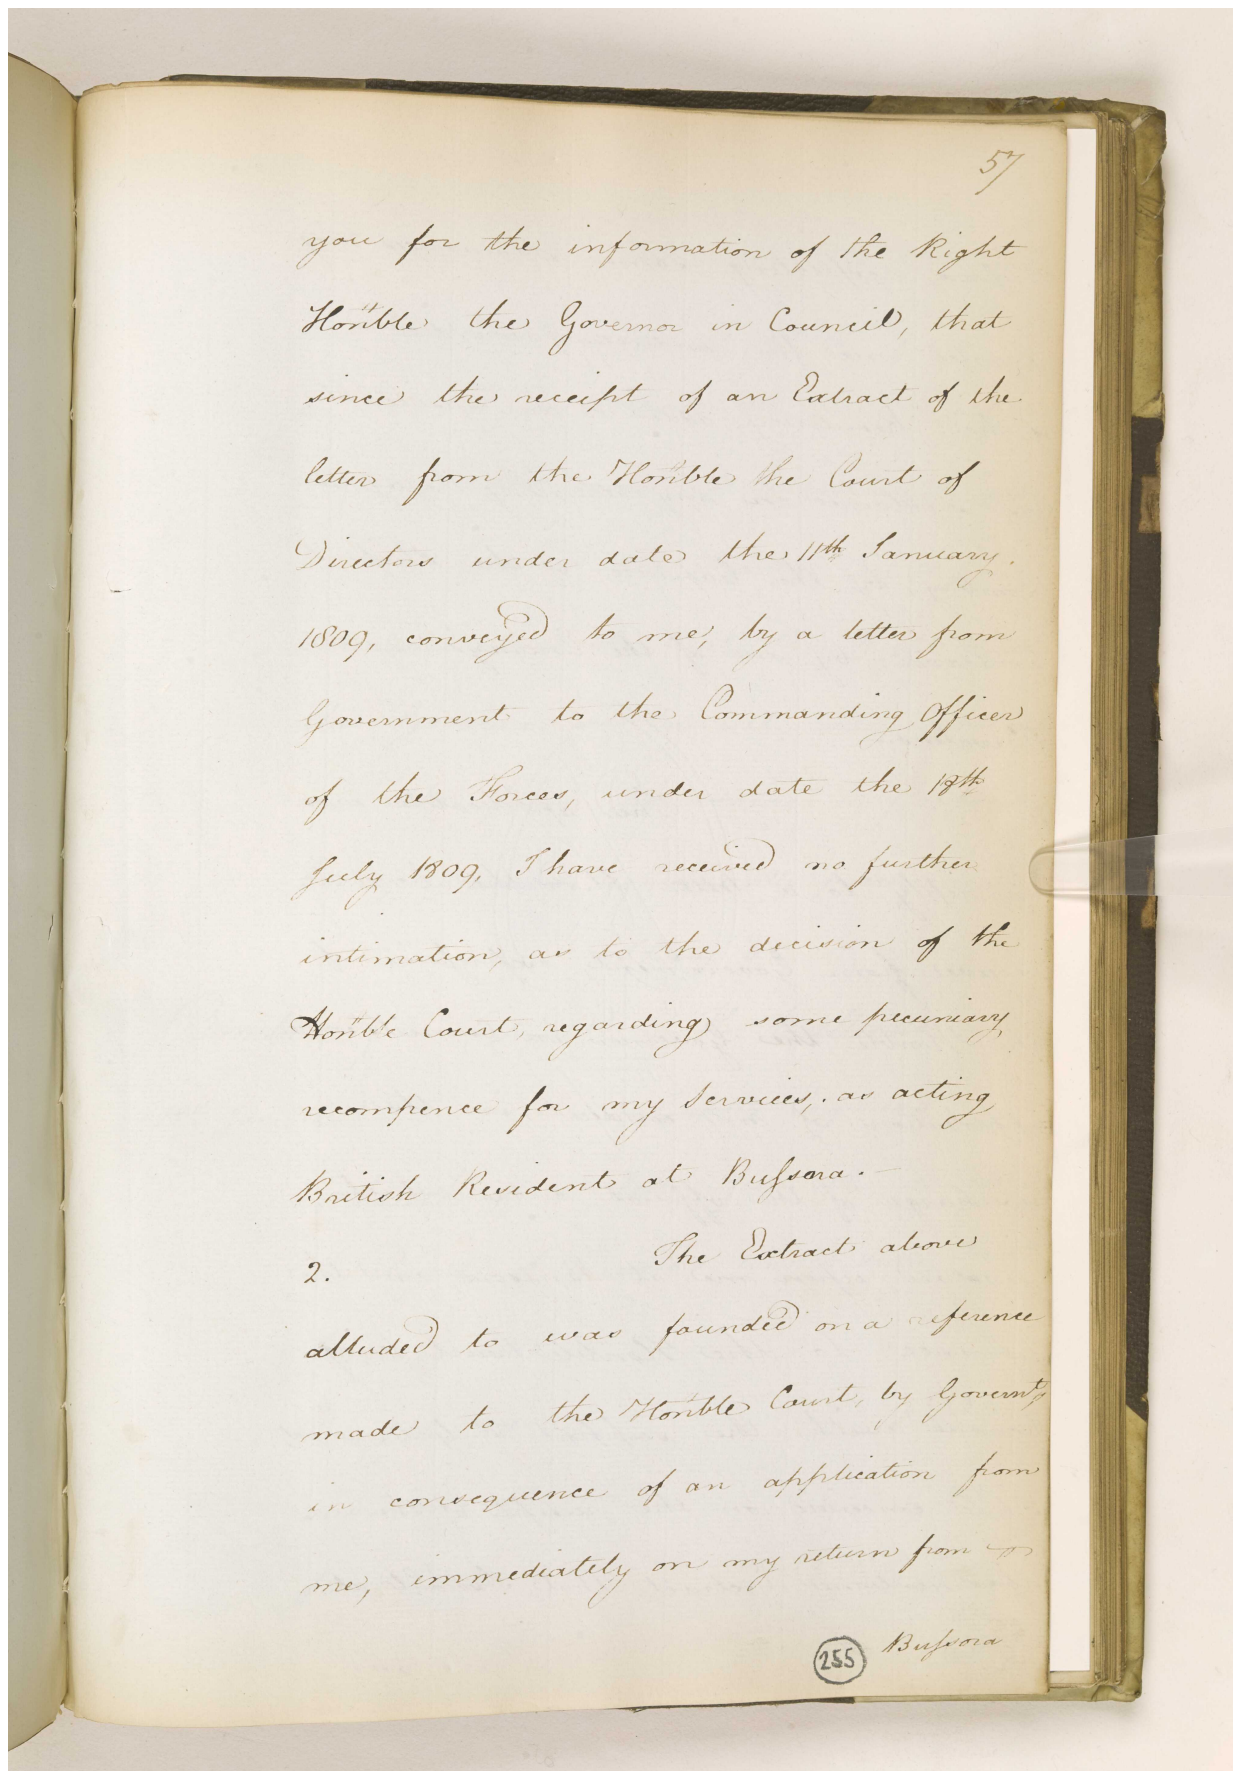 57
you for the information of the Right
Hon'ble the Governor in Council, that
since the receipt of an Extract of the
letter from the Hon'ble the Court of
Directors under date the 11th January.
1809, conveyed to me, by a letter from
Government to the Commanding Officer
of the Forces, under date the 18th
July 1809, I have received no further
intimation, as to the decision of the
Hon'ble Court, regarding some pecuniary
recompence for my Services, as acting
British Resident at Bussora. —
2. The Extract above
alluded to was founded on a reference
made to the Hon'ble Court, by Governt,
in consequence of an application from
me, immediately on my return from
Bussora
255